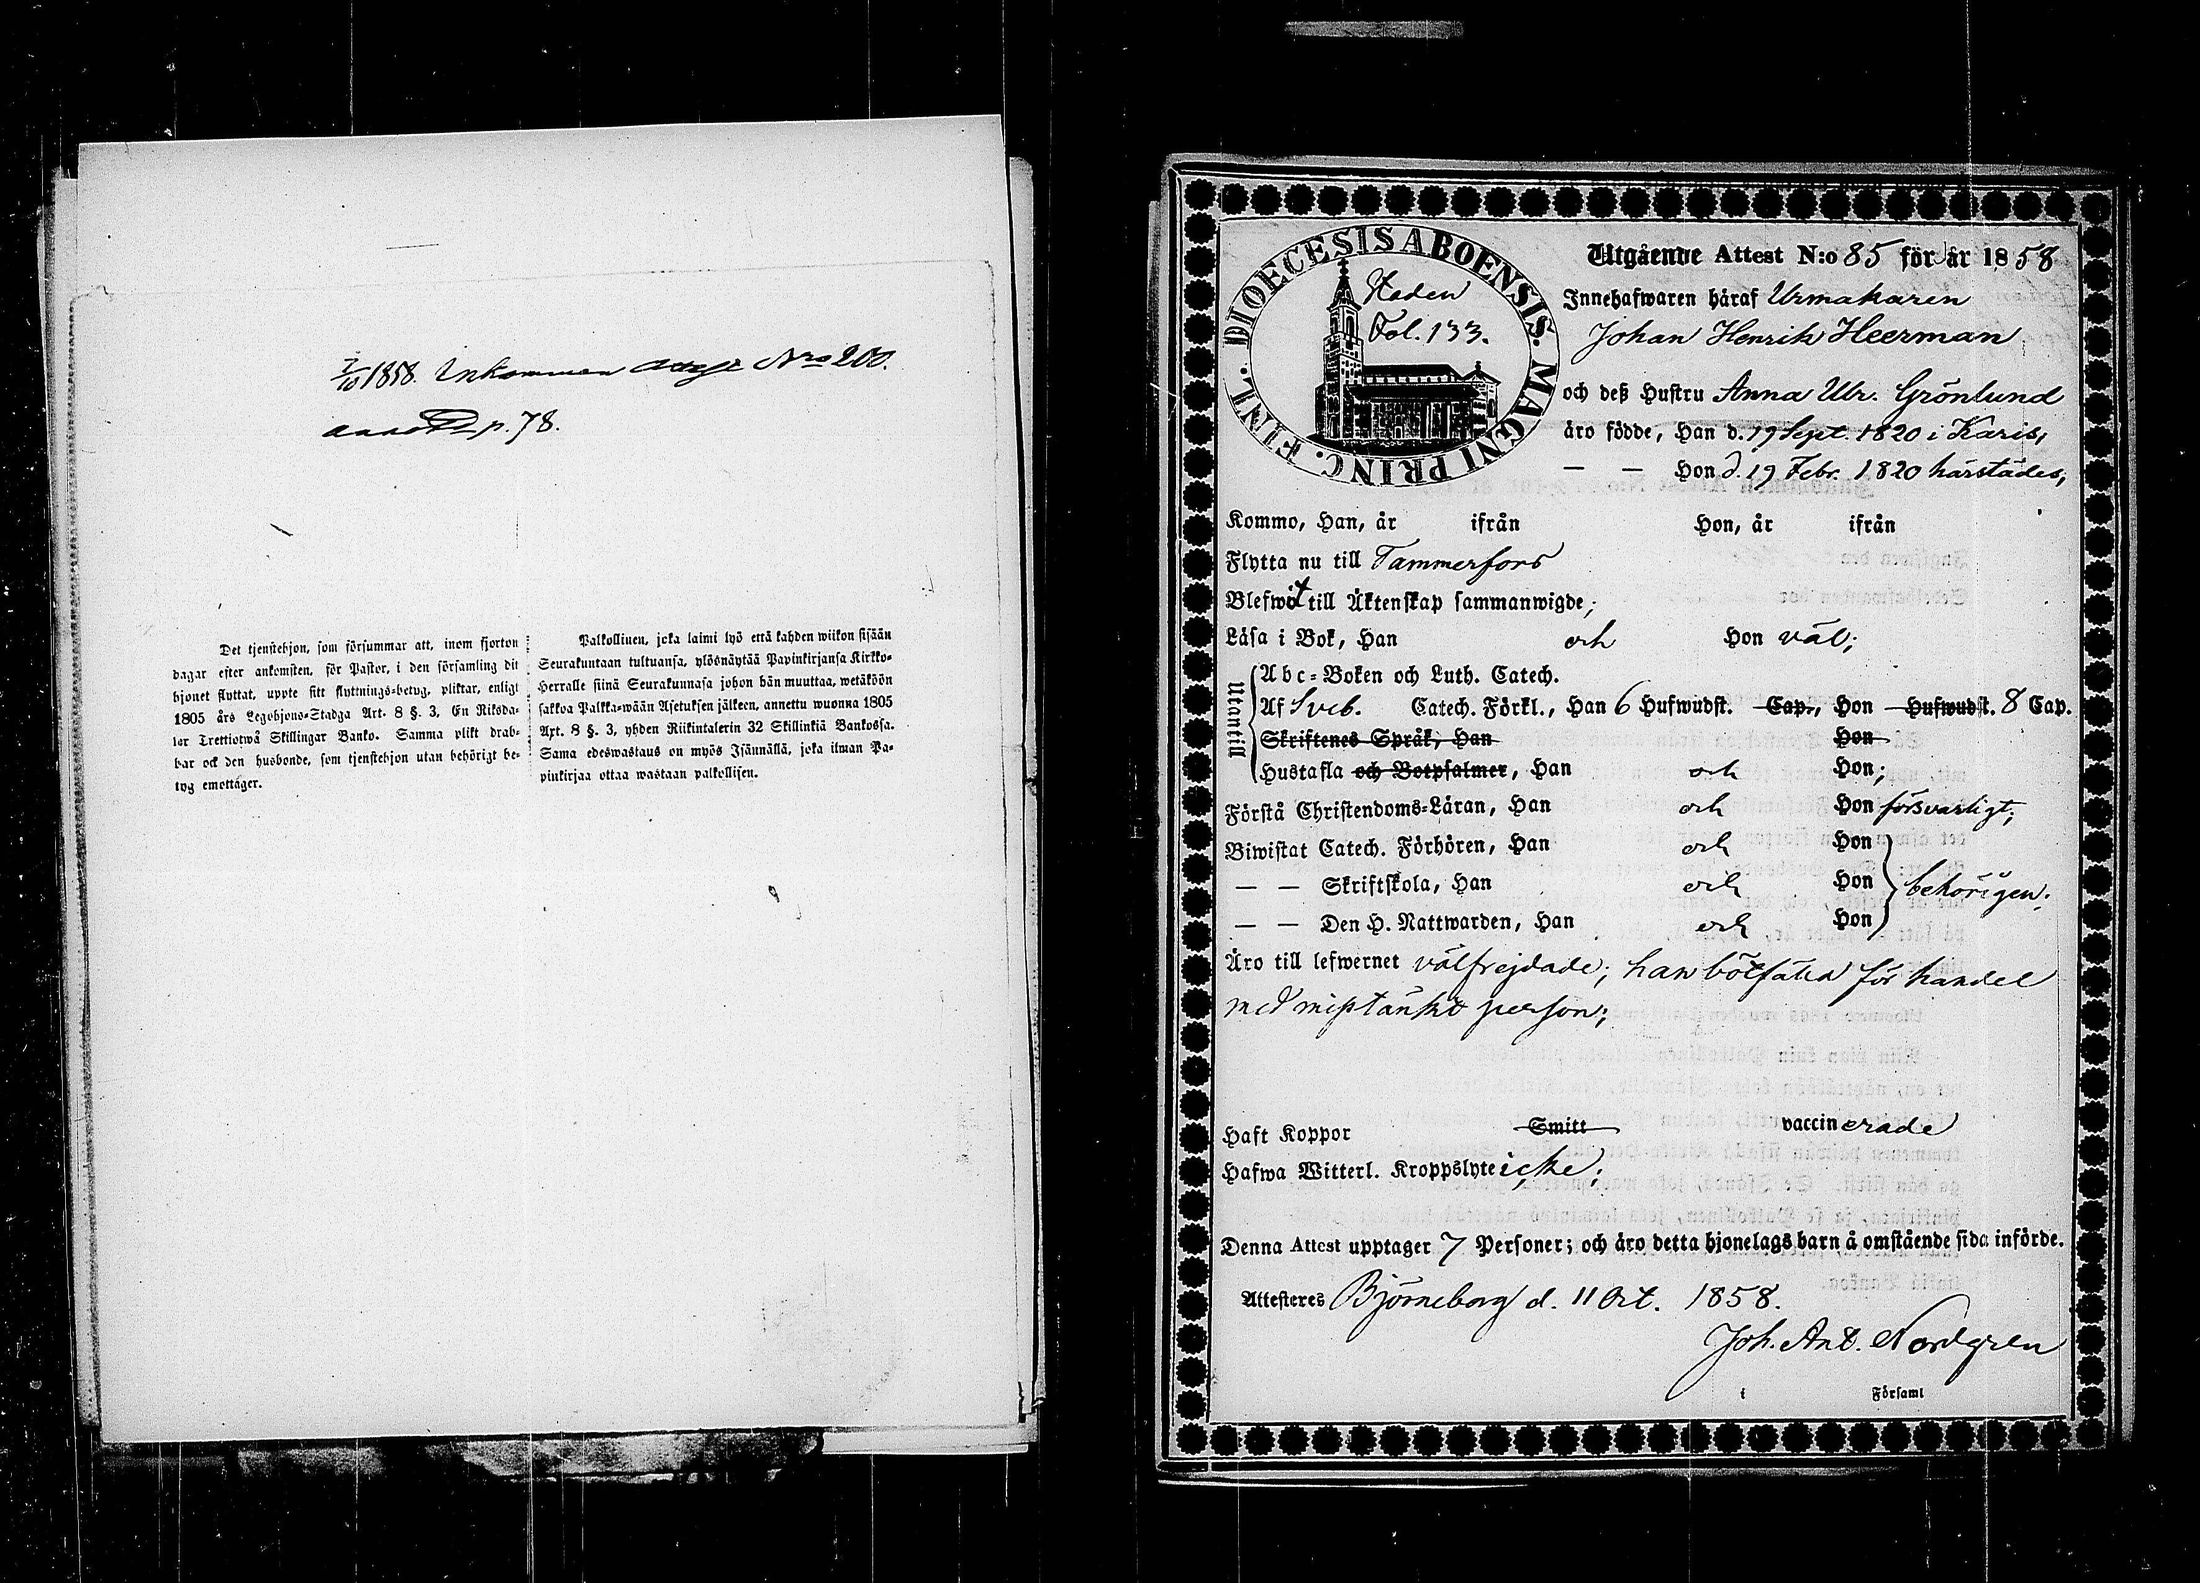 1858. Inkommen attest Nro 200.
p. 78.
Det tjenstehjon, som försummar att, inom fjorton
dagar efter ankomsten, för Pastor, i den församling dit
hjonet flyttat, uppte sitt flyttnings-betyg, pliktar, enligt
1805 års Legohjons-Stadga Art. 8 §. 3, En Riksda-
ler Trettiotwå Skillingar Banko. Samma plikt drab-
bar ock den husbonde, som tjenstehjon utan behörigt be-
tyg emottager.
Palkollinen, joka laimi lyö että kahden wiikon sisään
Seurakuntaan tultuansa, ylösnäytää Papinkirjansa Kirkko-
Herralle siinä Seurakunnasa johon hän muuttaa, wetäköön
sakkoa Palkka-wään Asetuksen jälkeen, annettu wuonna 1805
Art. 8 §. 3, yhden Riikintalerin 32 Skillinkiä Bankossa.
Sama edeswastaus on myös Isännällä, joka ilman Pa-
pinkirjaa ottaa wastaan palkollisen.
DIOECESIS ABOENSIS. MAGNI PRINC. FINL.
Staden
Fol. 133.
Utgående Attest N:o 85 för år 1858
Innehafwaren häraf Urmakaren
Johan Henrik Heerman
och deß Hustru Anna Ulr. Grönlund
äro födde, Han d. 19 Sept. 1820 i Karis,
— — Hon d. 19 Febr. 1820 härstädes,
Kommo, Han, år ifrån Hon, år ifrån
Flytta nu till Tammerfors
Blefwit till Äktenskap sammanwigde;
Läsa i Bok, Han och Hon väl;
Utantill
Abc-Boken och Luth. Catech.
Af Sveb. Catech. Förkl., Han 6 Hufwudst. Cap., Hon Hufwudst. 8 Cap.
Skriftenes Språk, Han Hon
Hustafla och Botpsalmer, Han och Hon;
Förstå Christendoms-Läran, Han och Hon försvarligt;
Biwistat Catech. Förhören, Han och Hon
— — Skriftskola, Han och Hon behörigen;
— — Den H. Nattwarden, Han och Hon
Äro till lefwernet välfrejdade; han bötfälld för handel
med misstänkt person;
Haft Koppor Smitt vaccinerade
Hafwa Witterl. Kroppslyte icke;
Denna Attest upptager 7 Personer; och äro detta hjonelags barn å omstående sida införde.
Attesteres Björneborg d. 11 Oct. 1858.
Joh. Ant. Nordgren
i Församl